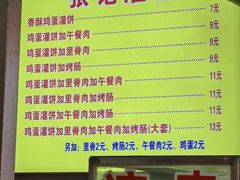 香酥鸡蛋灌饼 7元
鸡蛋灌饼加午餐肉 9元
鸡蛋灌饼加里脊肉 9元
鸡蛋灌饼加烤肠 9元
鸡蛋灌饼加里脊肉加午餐肉 11元
鸡蛋灌饼加里脊肉加烤肠 11元
鸡蛋灌饼加午餐肉加烤肠 11元
鸡蛋灌饼加里脊肉加午餐肉加烤肠(大套) 13元
另加：里脊2元、烤肠2元、午餐肉2元、鸡蛋2元